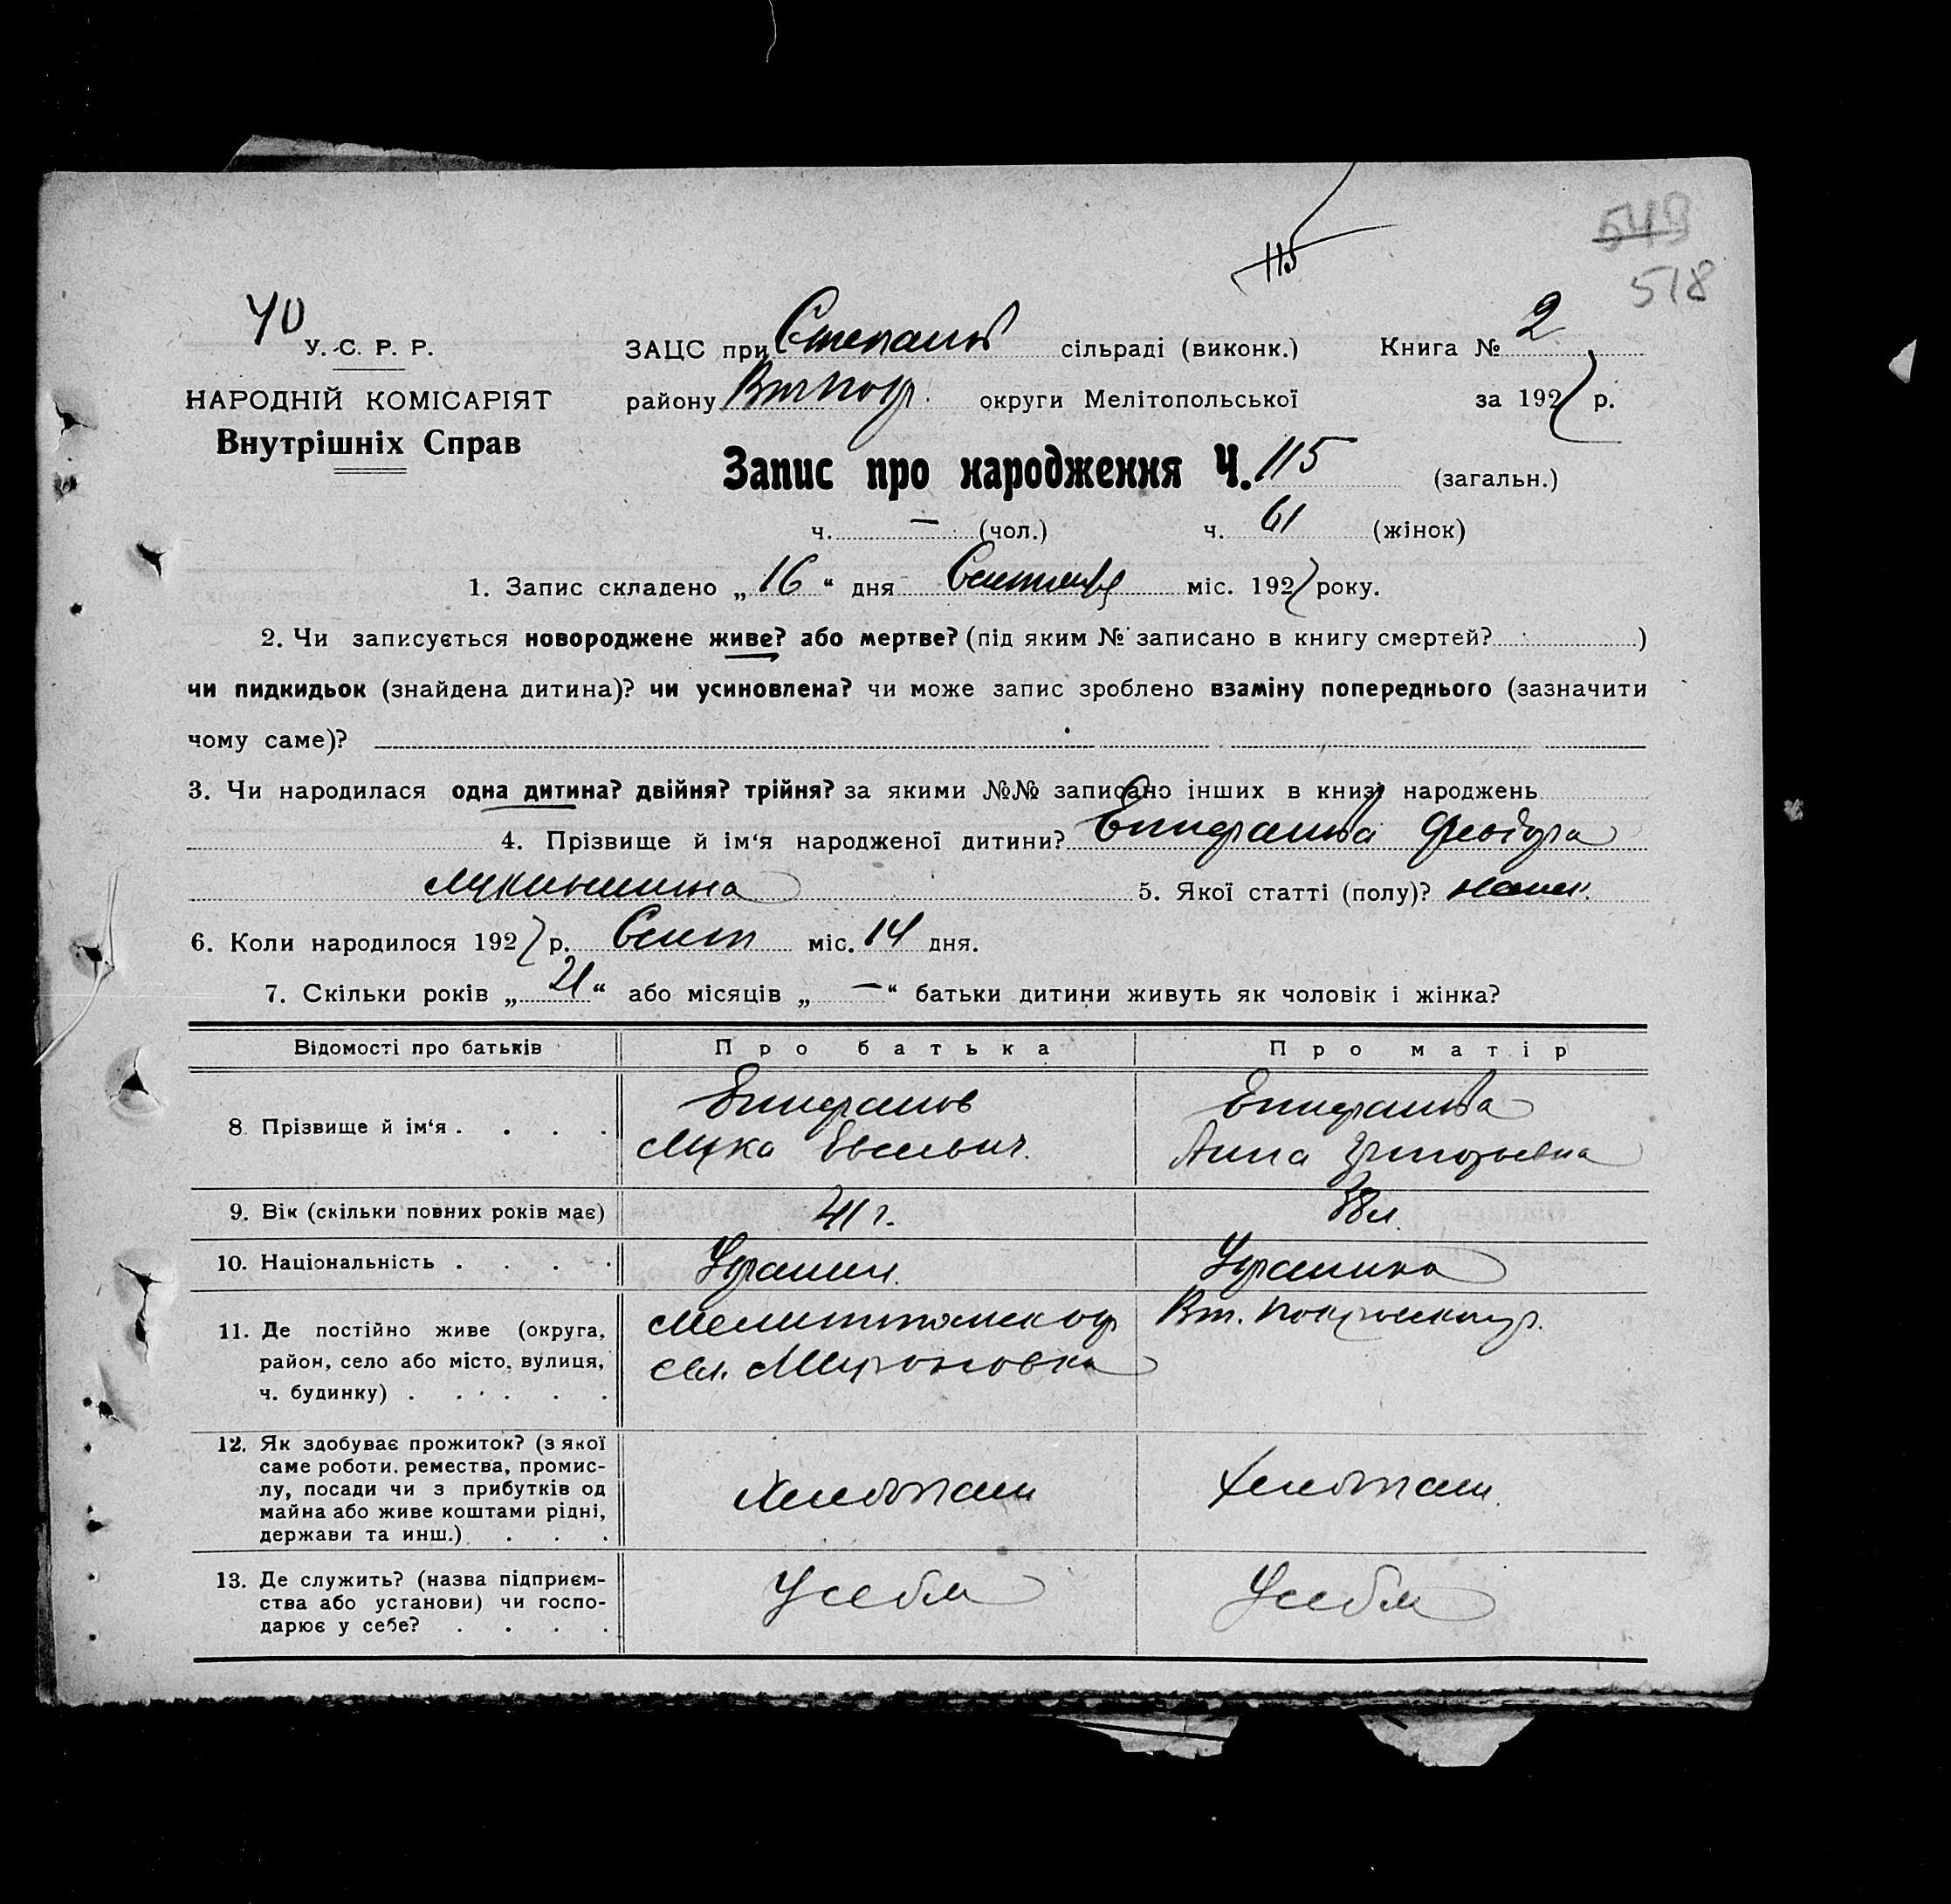 549
518
115
40
У. С. Р. Р.
НАРОДНІЙ КОМІСАРІЯТ
Внутрішніх Справ
ЗАЦС при Степанов сільраді (виконк.) Книга № 2
району Вт Покр. округи Мелітопольської за 1927 р.
Запис про народження Ч. 115 (загальн.)
ч. — (чол.) ч. 61 (жінок)
1. Запис складено „16“ дня Сентября міс. 1927 року.
2. Чи записується новороджене живе? або мертве? (під яким № записано в книгу смертей? )
чи пидкидьок (знайдена дитина)? чи усиновлена? чи може запис зроблено взаміну попереднього (зазначити
чому саме)?
3. Чи народилася одна дитина? двійня? трійня? за якими №№ записано інших в книзі народжень
4. Прізвище й ім‘я народженої дитини? Епифанова
Лукинишна 5. Якої статті (полу)?
6. Коли народилося 1927 р. Сент міс. 14 дня.
7. Скільки років „21“ або місяців „—“ батьки дитини живуть як чоловік і жінка?
Відомості про батьків Про батька Про матір
8 Прізвище й ім‘я . . . . Епифанов Лука Евсеевич. Епифанова Анна Григорьевна
9. Вік (скільки повних років має) 41 г. 38 л.
10. Національність . . . . Украин. Украинка
11. Де постійно живе (округа, Мелитопольск окр Вт. Покровский р.
район, село або місто, вулиця, сел. Мироновка
ч. будинку) . . . . .
12. Як здобуває прожиток? (з якої
саме роботи. ремества, промис-
лу, посади чи з прибутків од Хлебопаш Хлебопаш.
майна або живе коштами рідні,
держави та инш.) . . .
13. Де служить? (назва підприєм- У себя У себя
ства або установи) чи госпо-
дарює у себе? . . . .